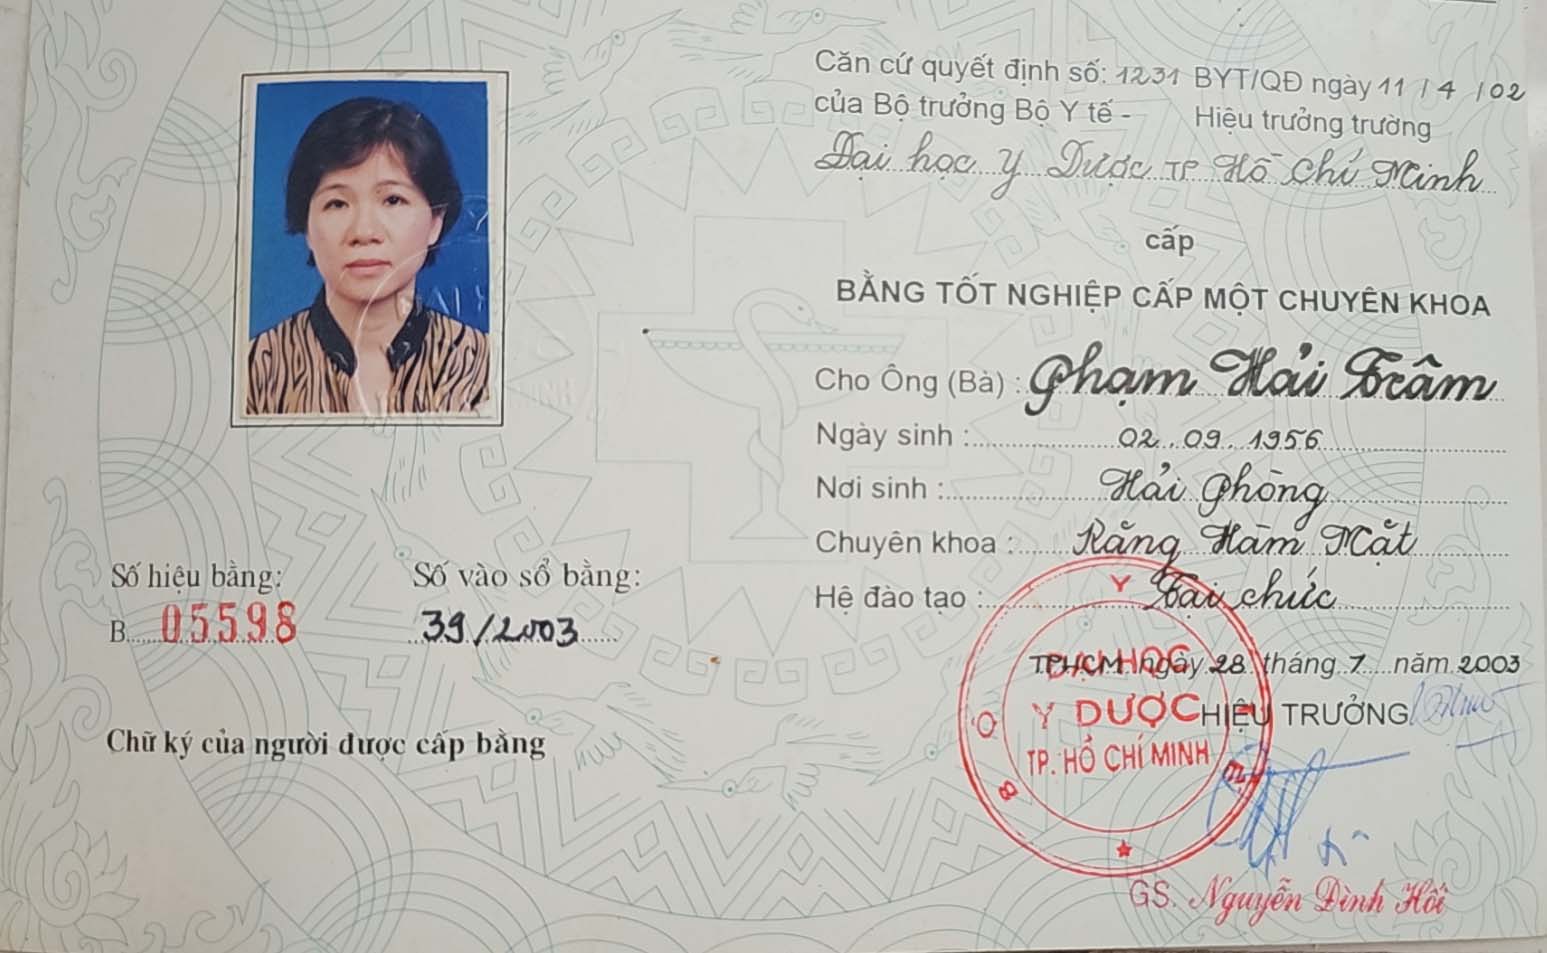 Căn cứ quyết định số: 1231 BYT/QĐ ngày 11 / 4 / 02
của Bộ trưởng Bộ Y tế - Hiệu trưởng trường
Đại học Y Dược TP Hồ Chí Minh
cấp
BẰNG TỐT NGHIỆP CẤP MỘT CHUYÊN KHOA
Cho Ông (Bà) : Phạm Hải Trâm
Ngày sinh : 02.09.1956
Nơi sinh : Hải Phòng
Chuyên khoa : Răng Hàm Mặt
Hệ đào tạo : Tại chức
TPHCM ngày 28 tháng 7 năm 2003
HIỆU TRƯỞNG
BỘ Y TẾ
ĐẠI HỌC
Y DƯỢC
TP. HỒ CHÍ MINH
GS. Nguyễn Đình Hối
Số hiệu bằng: Số vào sổ bằng:
B. 05598 39/2003
Chữ ký của người được cấp bằng